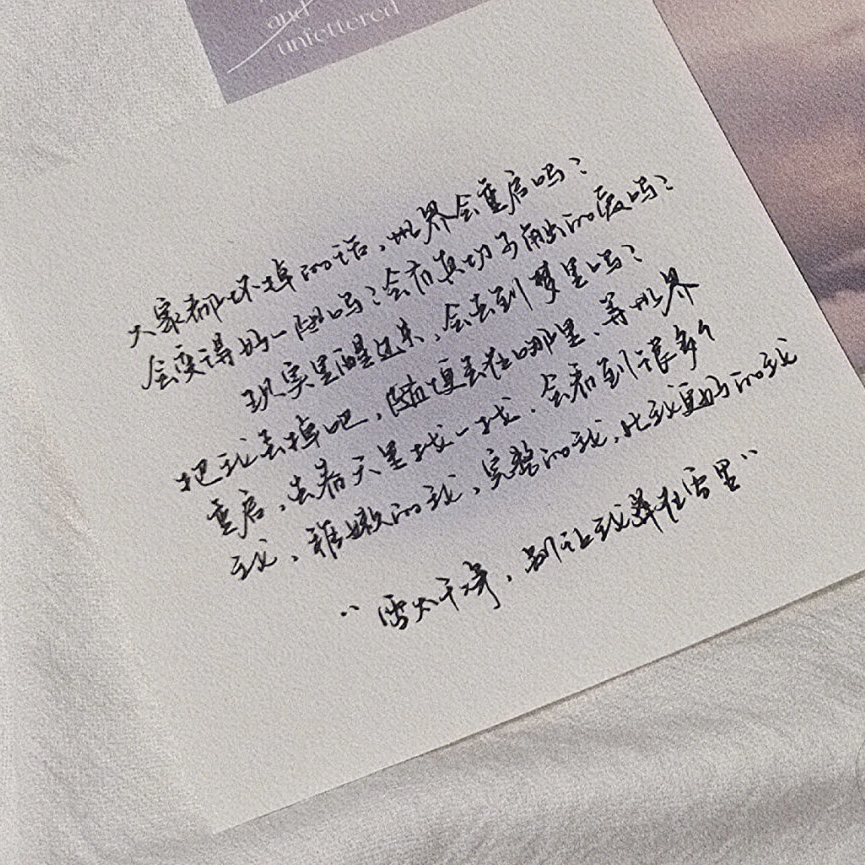 and
unfettered
大家都坏掉的话，世界会重启吗？
会变得好一点吗？会有真切可触的爱吗？
现实里醒过来，会去到梦里吗？
把我丢掉吧，随便丢在哪里、等世界
重启，去春天里找一找．会看到很多个
我、稚嫩的我，完整的我，比我更好的我
“雪太干净，别让我葬在雪里”